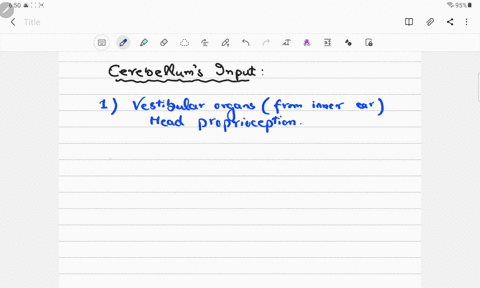 6:50
95%
Title
Cerebellum's Input:
1) Vestibular organs (from inner ear)
Head proprioception.